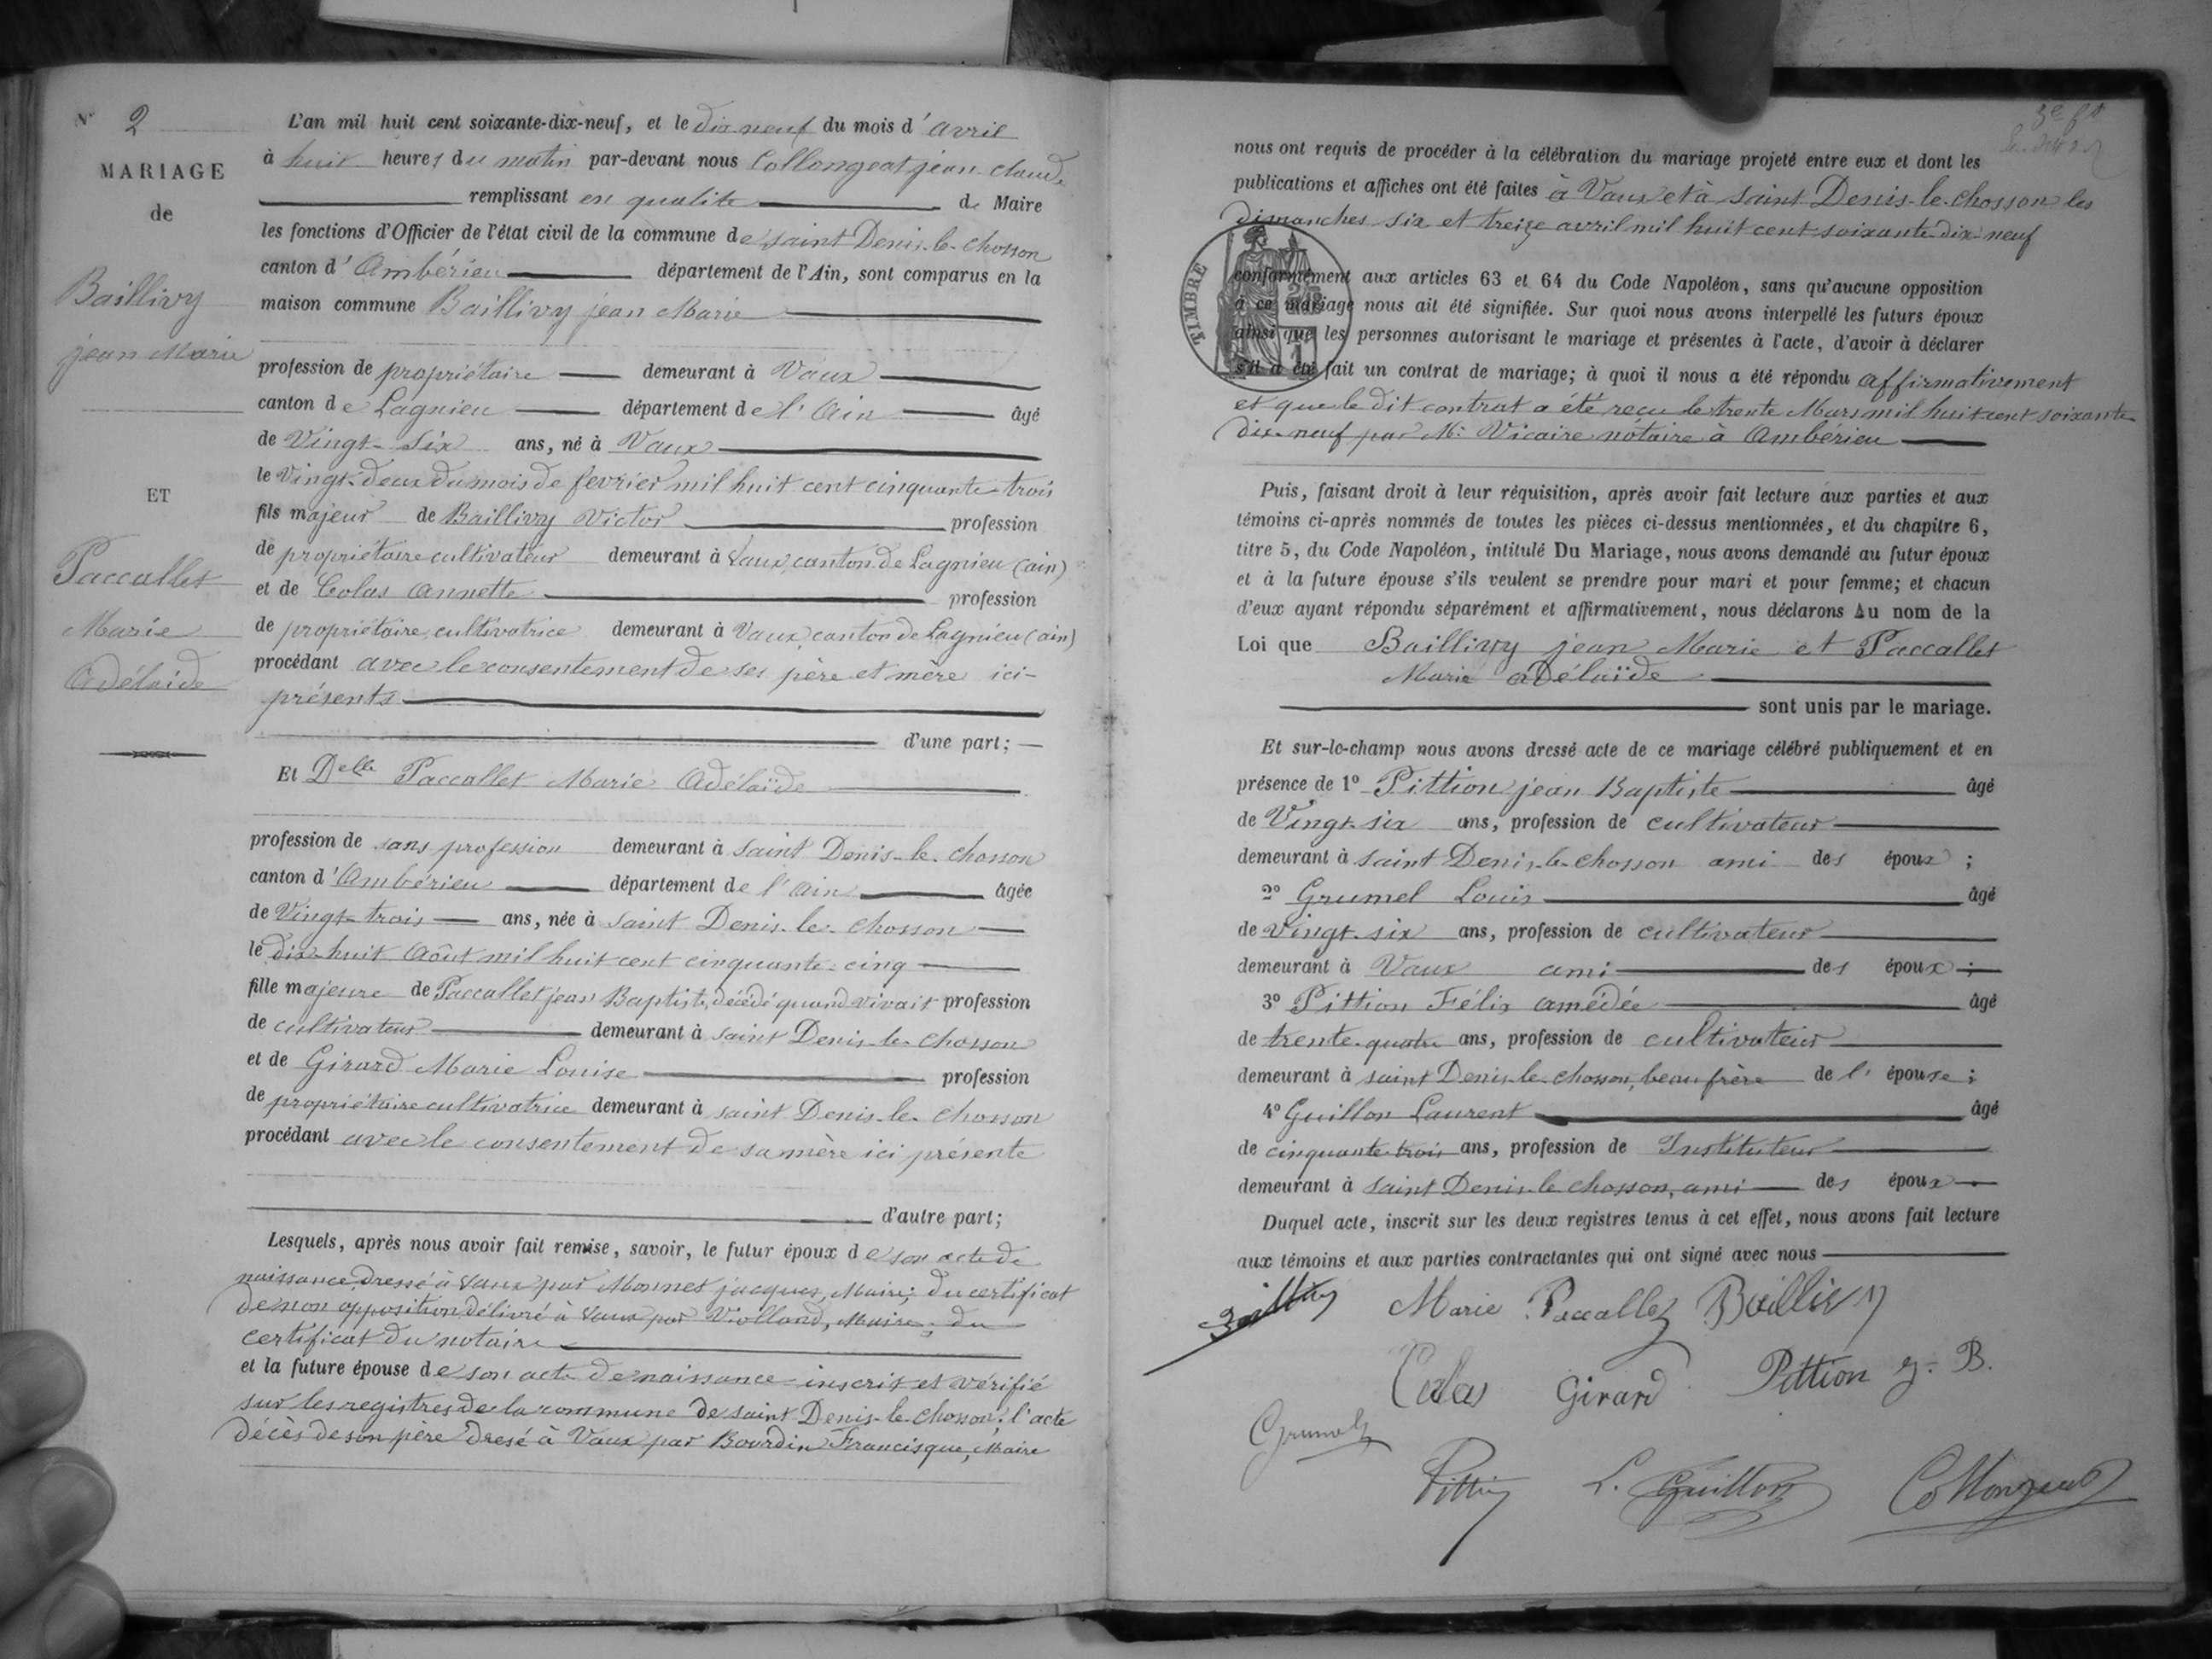 N° 2
MARIAGE
de
Baillivy
jean Marie
ET
Paccallet
Marie
Adélaïde
L'an mil huit cent soixante-dix-neuf, et le dix neuf du mois d'avril
à huit heures du matin par-devant nous Collongeat jean Claude
remplissant en qualité de Maire
les fonctions d'Officier de l'état civil de la commune de saint Denis-le-Chosson
canton d'Ambérieu département de l'Ain, sont comparus en la
maison commune Baillivy jean Marie
profession de propriétaire demeurant à Vaux
canton de Lagnieu département de l'Ain âgé
de Vingt-Six ans, né à Vaux
le Vingt-deux du mois de fevrier mil huit cent cinquante trois
fils majeur de Baillivy Victor profession
de propriétaire cultivateur demeurant à Vaux, canton de Lagnieu (ain)
et de Colas Annette profession
de propriétaire, cultivatrice demeurant à Vaux, canton de Lagnieu (ain)
procédant avec le consentement de ses père et mère ici-
présents
d'une part;
Et Delle Paccallet Marie Adélaïde
profession de sans profession demeurant à Saint Denis-le-Chosson
canton d'Ambérieu département de l'Ain âgée
de Vingt-trois ans, née à Saint Denis-le-Chosson
le dix-huit Août mil huit cent cinquante-cinq
fille majeure de Paccallet jean Baptiste, décédé quand vivait profession
de cultivateur demeurant à saint Denis-le-Chosson
et de Girard Marie Louise profession
de propriétaire cultivatrice demeurant à saint Denis-le-Chosson
procédant avec le consentement de sa mère ici présente
d'autre part;
Lesquels, après nous avoir fait remise, savoir, le futur époux de son acte de
naissance dressé à Vaux par Monnet jacques, Maire; du certificat
de non opposition délivré à Vaux par Violland, Maire; du
certificat du notaire
et la future épouse de son acte de naissance inscrit et vérifié
sur les registres de la commune de saint Denis-le-Chosson; l'acte
décès de son père dresé à Vaux par Bourdin Francisque, Maire
nous ont requis de procéder à la célébration du mariage projeté entre eux et dont les
publications et affiches ont été faites à Vaux et à saint Denis-le-Chosson les
dimanches six et treize avril mil huit cent soixante dix-neuf
TIMBRE
conformément aux articles 63 et 64 du Code Napoléon, sans qu'aucune opposition
à ce mariage nous ait été signifiée. Sur quoi nous avons interpellé les futurs époux
ainsi que les personnes autorisant le mariage et présentes à l'acte, d'avoir à déclarer
s'il a été fait un contrat de mariage; à quoi il nous a été répondu affirmativement
et que le dit contrat a été reçu le trente Mars mil huit cent soixante
dix-neuf par Me Vicaire notaire à Ambérieu
Puis, faisant droit à leur réquisition, après avoir fait lecture aux parties et aux
témoins ci-après nommés de toutes les pièces ci-dessus mentionnées, et du chapitre 6,
titre 5, du Code Napoléon, intitulé Du Mariage, nous avons demandé au futur époux
et à la future épouse s'ils veulent se prendre pour mari et pour femme; et chacun
d'eux ayant répondu séparément et affirmativement, nous déclarons Au nom de la
Loi que Baillivy jean Marie et Paccallet
Marie adélaïde
sont unis par le mariage.
Et sur-le-champ nous avons dressé acte de ce mariage célébré publiquement et en
présence de 1° Pittion jean Baptiste âgé
de Vingt-six ans, profession de cultivateur
demeurant à saint Denis-le-Chosson ami des époux;
2° Grumel Louis âgé
de Vingt-six ans, profession de cultivateur
demeurant à Vaux ami des époux;
3° Pittion Félix amédée âgé
de trente-quatre ans, profession de cultivateur
demeurant à saint Denis-le-Chosson, beau frère de l'épouse;
4° Guillon Laurent âgé
de cinquante trois ans, profession de Instituteur
demeurant à saint Denis-le-Chosson, ami des époux
Duquel acte, inscrit sur les deux registres tenus à cet effet, nous avons fait lecture
aux témoins et aux parties contractantes qui ont signé avec nous
Baillivy Marie Paccallet Baillivy
Colas Girard Pittion J. B.
Grumel
Pittion L. Guillon Collongeat